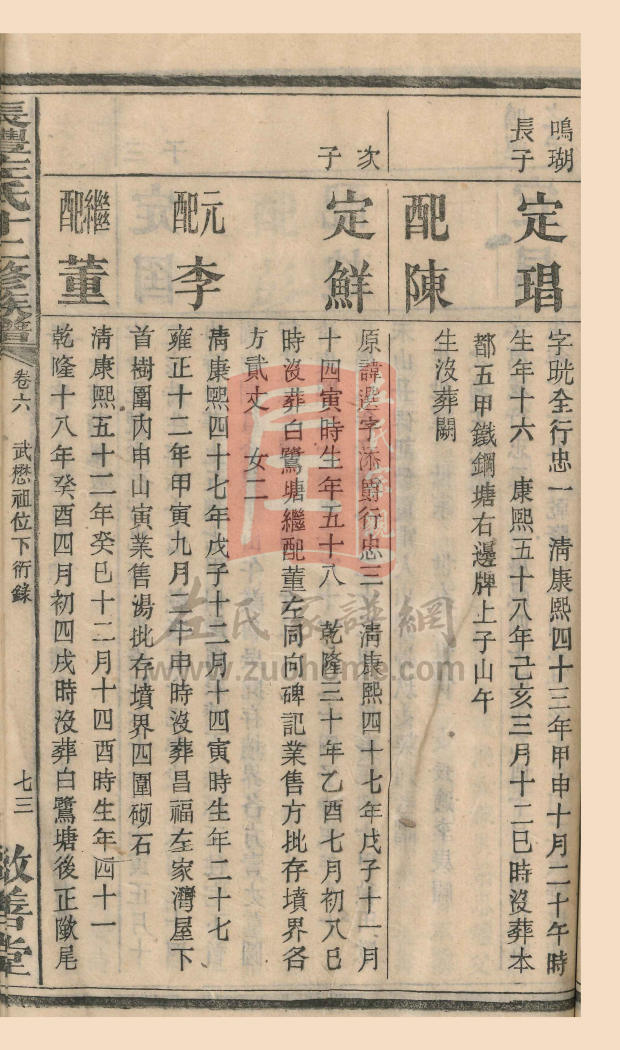 鳴瑚
長子
定琩
字珖全行忠一 清康熙四十三年甲申十月二十午時
生年十六 康熙五十八年己亥三月十二巳時沒葬本
都五甲鐵鋼塘右邊牌上子山午
配陳
生沒葬闕
次
子
定鮮
原諱選字添爵行忠三 清康熙四十七年戊子十一月
十四寅時生年五十八 乾隆三十年乙酉七月初八巳
時沒葬白鷺塘繼配董左同向碑記業售方批存墳界各
方貳丈 女二
元配李
清康熙四十七年戊子十二月十四寅時生年二十七
雍正十二年甲寅九月二十申時沒葬昌福左家灣屋下
首樹園內申山寅業售湯批存墳界四圍砌石
繼配董
清康熙五十二年癸巳十二月十四酉時生年四十一
乾隆十八年癸酉四月初四戌時沒葬白鷺塘後正墈尾
長豐左氏十二修族譜
卷六 武懋祖位下衍錄
七三
敦善堂
左氏家譜網
www.zuohome.com